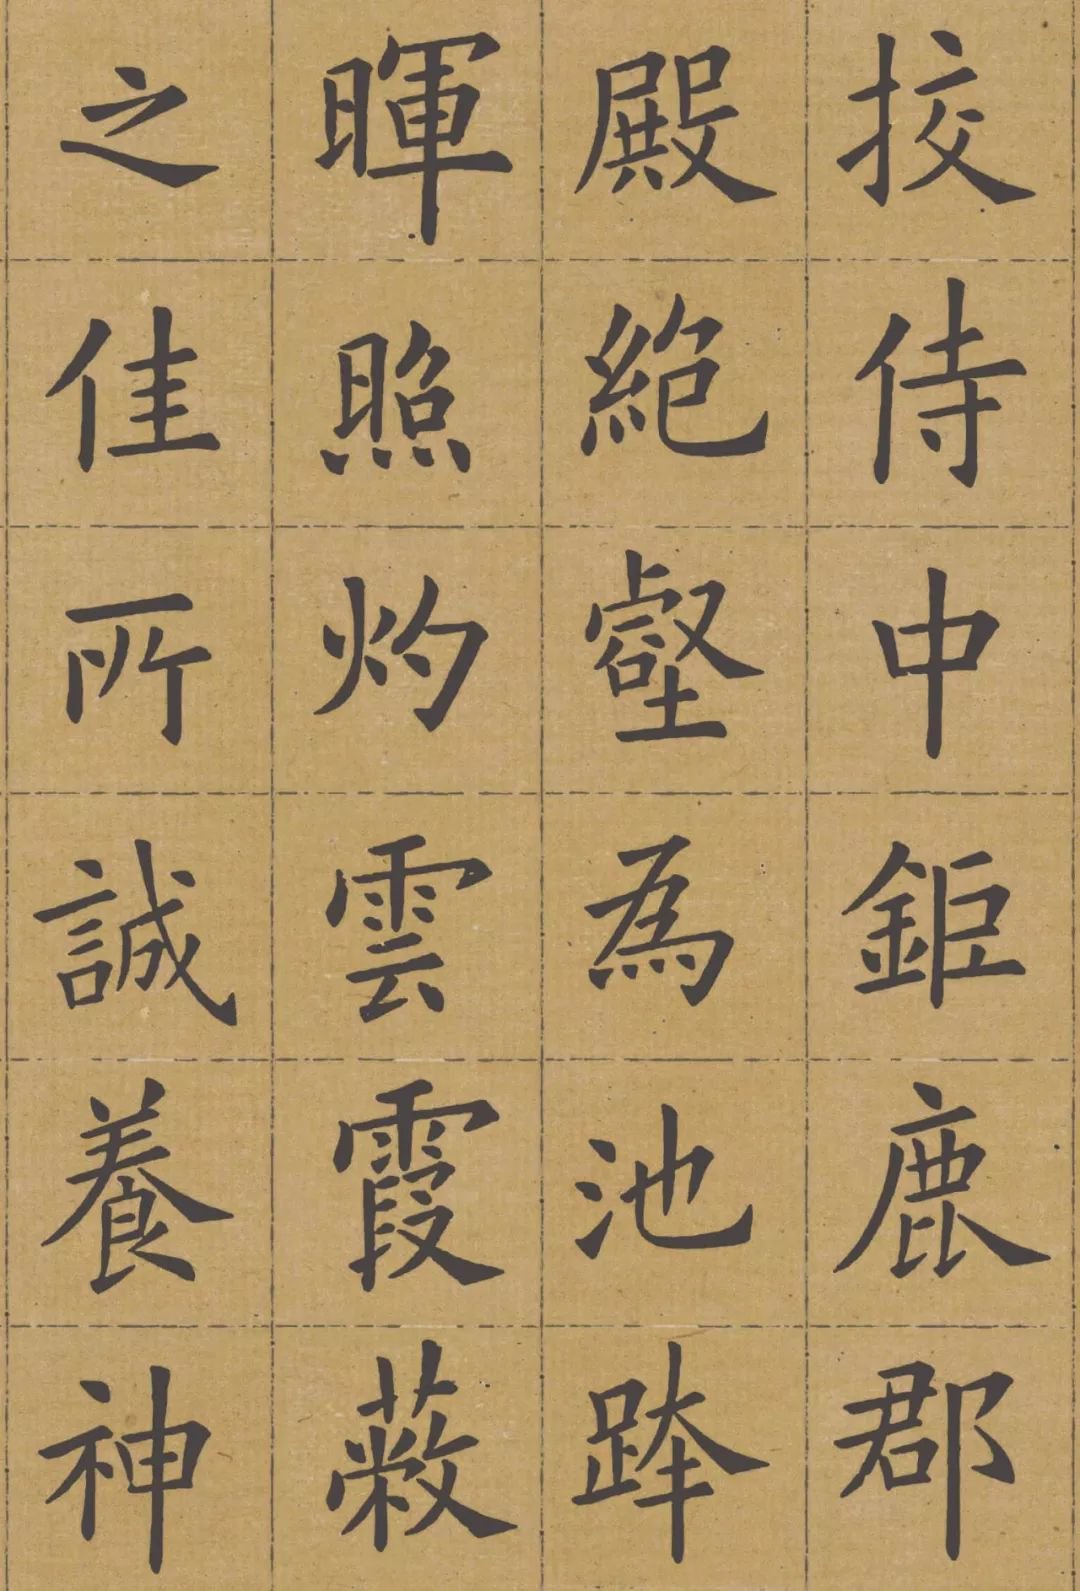 挍侍中鉅鹿郡
殿絶壑為池跨
暉照灼雲霞蔽
之佳所誠養神